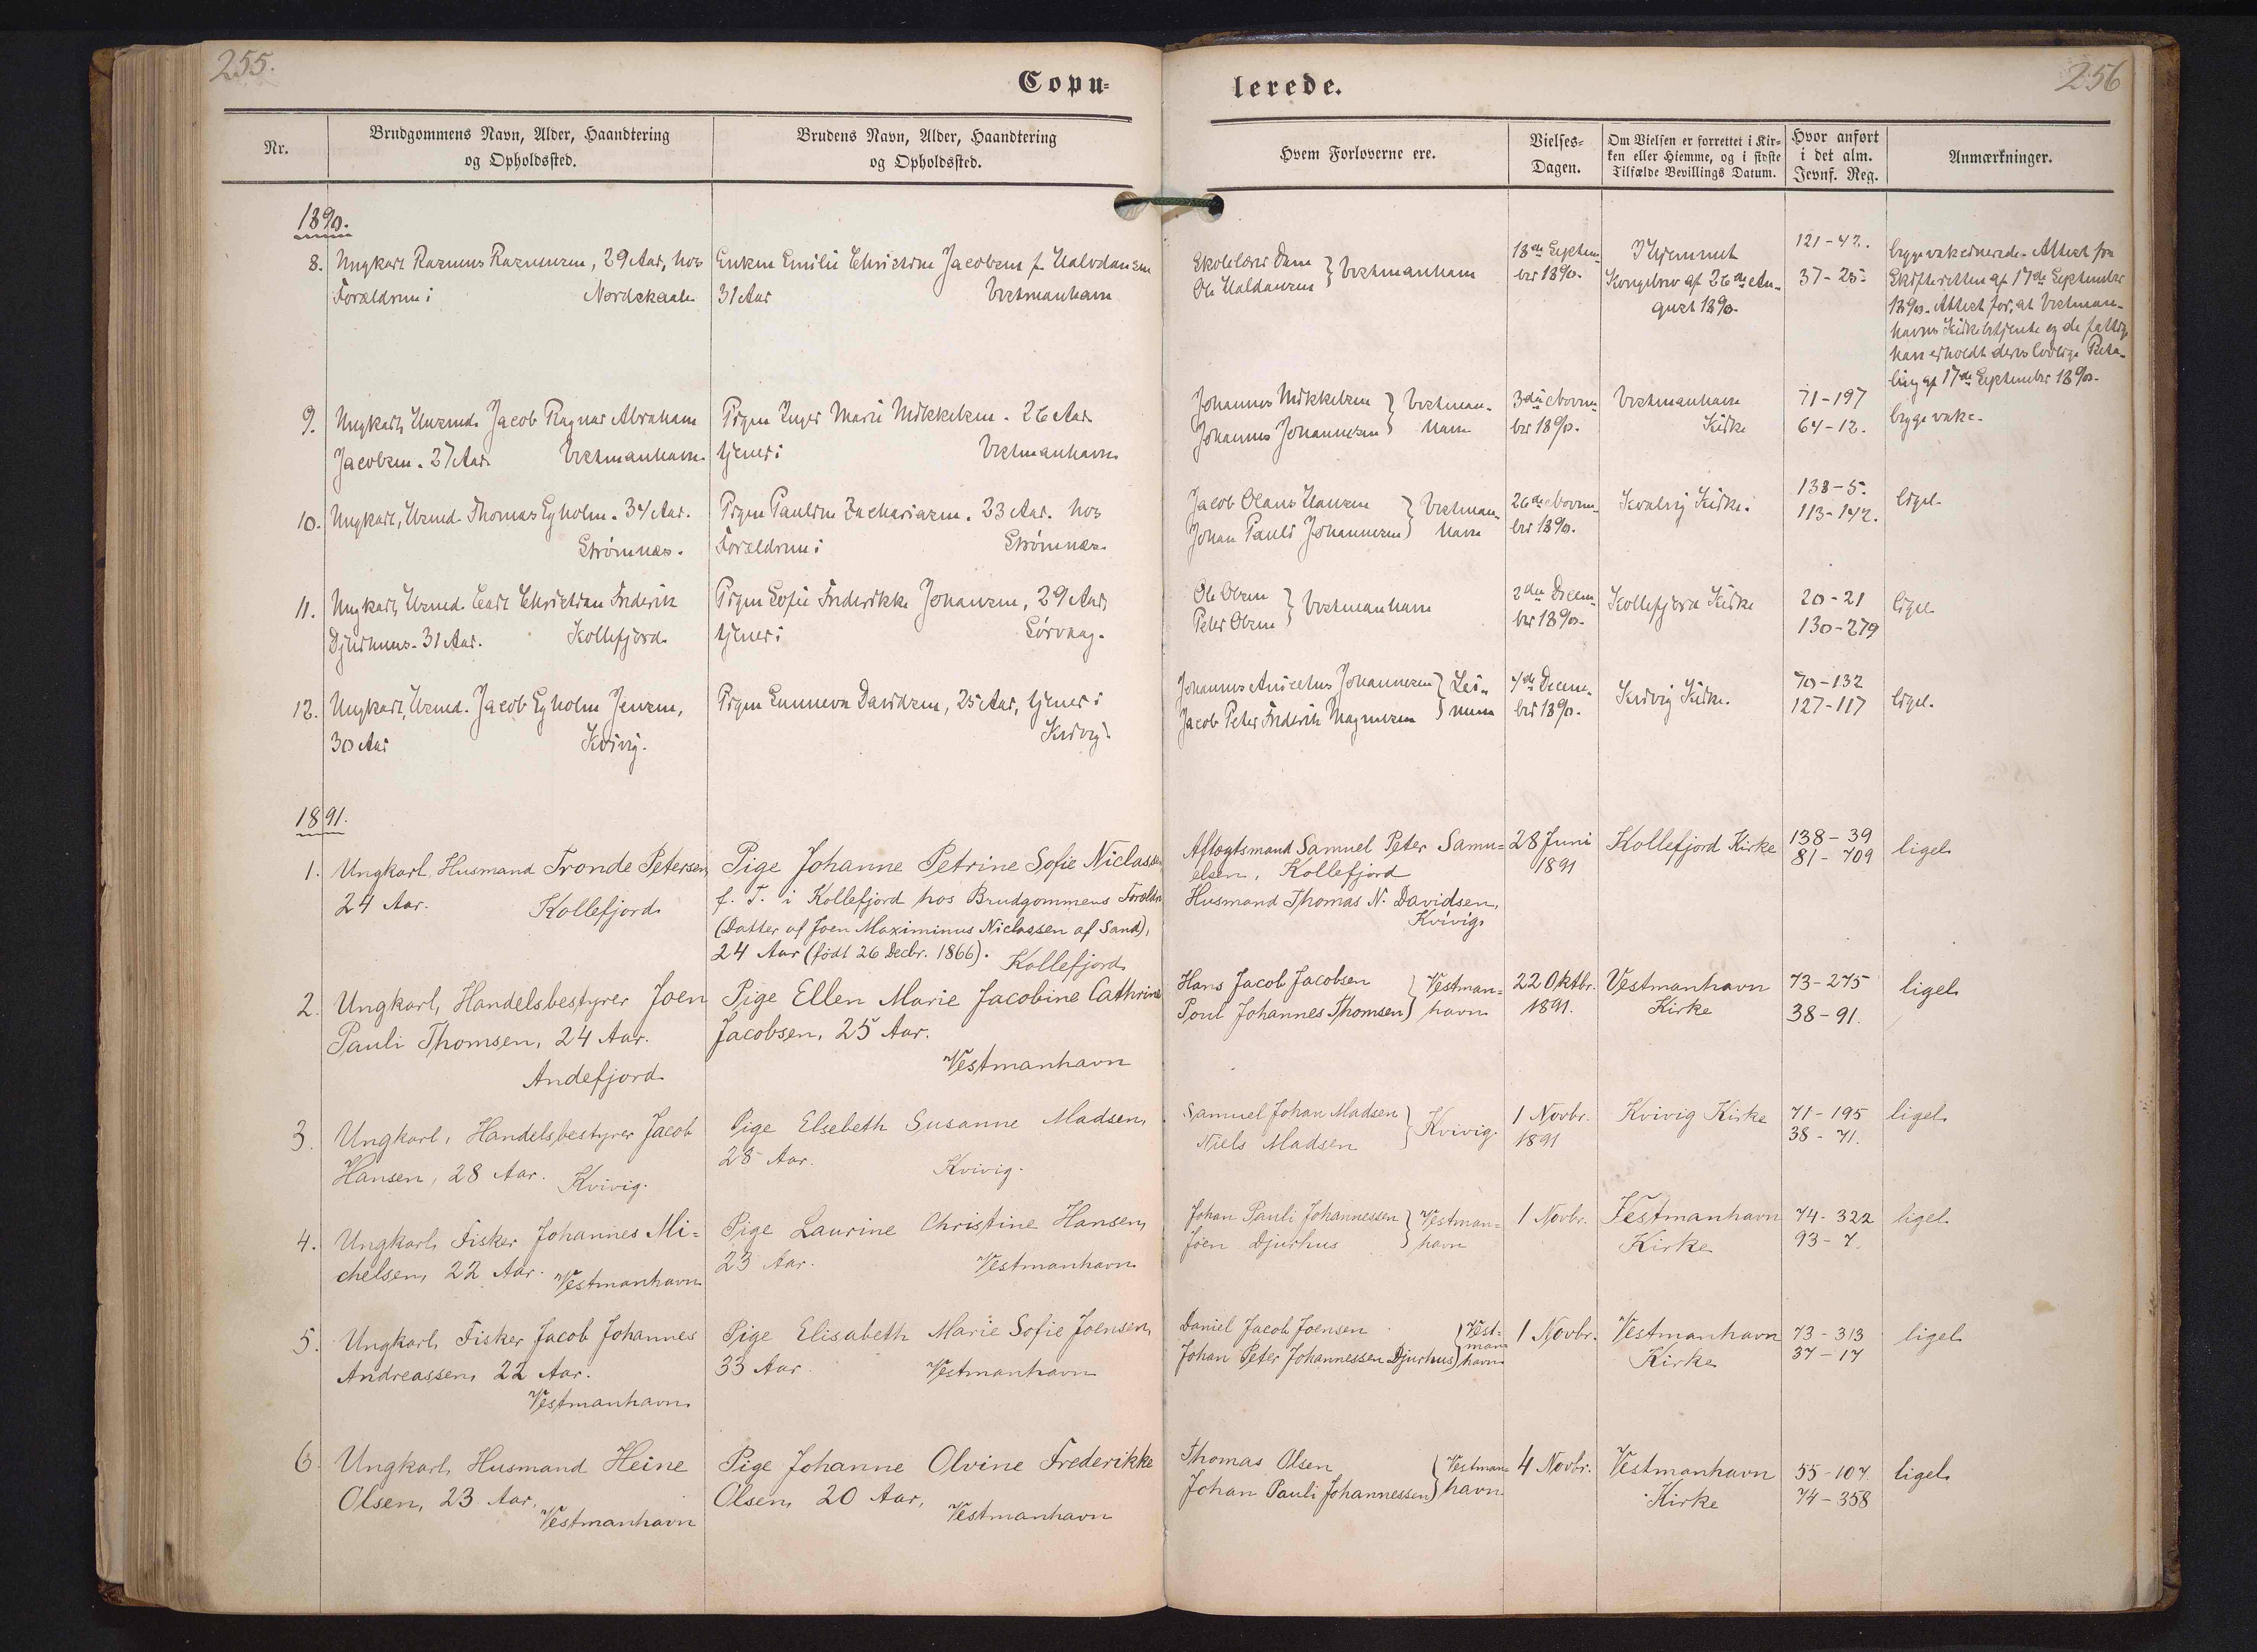 255.
256
Copu-
lerede.
Nr.
Brudgommens Navn, Alder, Haandtering
og Opholdssted.
Brudens Navn, Alder, Haandtering
og Opholdssted.
Hvem Forloverne ere.
Vielses-
Dagen.
Om Vielsen er forrettet i Kir-
ken eller Hiemme, og i sidste
Tilfælde Bevillings Datum.
Hvor anført
i det alm.
Jevnf. Reg.
Anmærkninger.
1890.
8.
Ungkarl Rasmus Rasmussen, 29 Aar, hos
Forældrene i Nordskaale
Enken Emilie Christine Jacobsen f. Halvdansen
31 Aar Vestmanhavn
Skolelærer Dam
Ole Haldansen
Vestmanhavn
18de Septem-
ber 1890.
I Hjemmet
Kongebrev af 26de Au-
gust 1890.
121-42.
37-25
begge vakcinerede. Attest fra
Skifteretten af 17de September
1890. Attest for, at Vestman-
havns Kirkebetjente og de fattige
have erholdt deres lovlige Beta-
ling af 17de September 1890.
9.
Ungkarl, Husmd. Jacob Ragnar Abraham
Jacobsen. 27 Aar. Vestmanhavn.
Pigen Inger Marie Mikkelsen. 26 Aar
tjener i Vestmanhavn
Johannes Mikkelsen
Johannes Johannesen
Vestman-
havn
3die Novem-
ber 1890.
Vestmanhavn
Kirke
71-197
64-12.
begge vakc.
10.
Ungkarl, Husmd. Thomas Egholm. 34 Aar.
Strømnæs.
Pigen Pauline Zachariasen. 23 Aar. hos
Forældrene i Strømnæs.
Jacob Olaus Hansen
Johan Pauli Johannesen
Vestman-
havn
26de Novem-
ber 1890.
Kvalvig Kirke.
138-5.
113-142.
ligel.
11.
Ungkarl, Husmd. Carl Christian Frederik
Djurhuus. 31 Aar. Kollefjord.
Pigen Sofie Frederikke Johansen, 29 Aar,
tjener i Sørvaag.
Ole Olsen
Peter Olsen
Vestmanhavn
2den Decem-
ber 1890.
Kollefjord Kirke
20-21
130-279
ligel.
12.
Ungkarl, Husmd. Jacob Egholm Jensen,
30 Aar Kvivig.
Pigen Sunneva Davidsen, 25 Aar, tjener i
Kvivig.
Johannes Anicetus Johannesen
Jacob Peter Frederik Magnusen
Lei-
num
4de Decem-
ber 1890.
Kvivig Kirke.
70-132
127-117
ligel.
1891.
1.
Ungkarl, Husmand Tronde Petersen,
24 Aar. Kollefjord.
Pige Johanne Petrine Sofie Niclassen
f. T. i Kollefjord hos Brudgommens Forældre
(Datter af Joen Maximinus Niclassen af Sand),
24 Aar (født 26 Decbr. 1866). Kollefjord.
Aftægtsmand Samuel Peter Samu-
elsen, Kollefjord
Husmand Thomas N. Davidsen,
Kvivig.
28 Juni
1891
Kollefjord Kirke
138-39
81-709
ligel.
2.
Ungkarl, Handelsbestyrer Joen
Pauli Thomsen, 24 Aar.
Andefjord.
Pige Ellen Marie Jacobine Cathrine
Jacobsen, 25 Aar.
Vestmanhavn
Hans Jacob Jacobsen
Poul Johannes Thomsen
Vestman-
havn
22 Oktbr.
1891.
Vestmanhavn
Kirke
73-275
38-91.
ligel.
3.
Ungkarl, Handelsbestyrer Jacob
Hansen, 28 Aar. Kvivig.
Pige Elsebeth Susanne Madsen,
28 Aar. Kvivig.
Samuel Johan Madsen
Niels Madsen
Kvivig.
1 Novbr.
1891
Kvivig Kirke
71-195
38-71.
ligel.
4.
Ungkarl, Fisker Johannes Mi-
chelsen, 22 Aar. Vestmanhavn.
Pige Laurine Christine Hansen,
23 Aar. Vestmanhavn.
Johan Pauli Johannessen
Joen Djurhus
Vestman-
havn
1 Novbr.
Vestmanhavn
Kirke
74-322
93-7.
ligel.
5.
Ungkarl, Fisker Jacob Johannes
Andreassen, 22 Aar.
Vestmanhavn.
Pige Elisabeth Marie Sofie Joensen,
33 Aar. Vestmanhavn
Daniel Jacob Joensen
Johan Peter Johannessen Djurhus
Vest-
man-
havn
1 Novbr.
Vestmanhavn
Kirke
73-313
37-17
ligel.
6.
Ungkarl, Husmand Heine
Olsen, 23 Aar,
Vestmanhavn
Pige Johanne Olvine Frederikke
Olsen, 20 Aar,
Vestmanhavn
Thomas Olsen
Johan Pauli Johannessen
Vestman-
havn
4 Novbr.
Vestmanhavn
Kirke
55-107.
74-358
ligel.